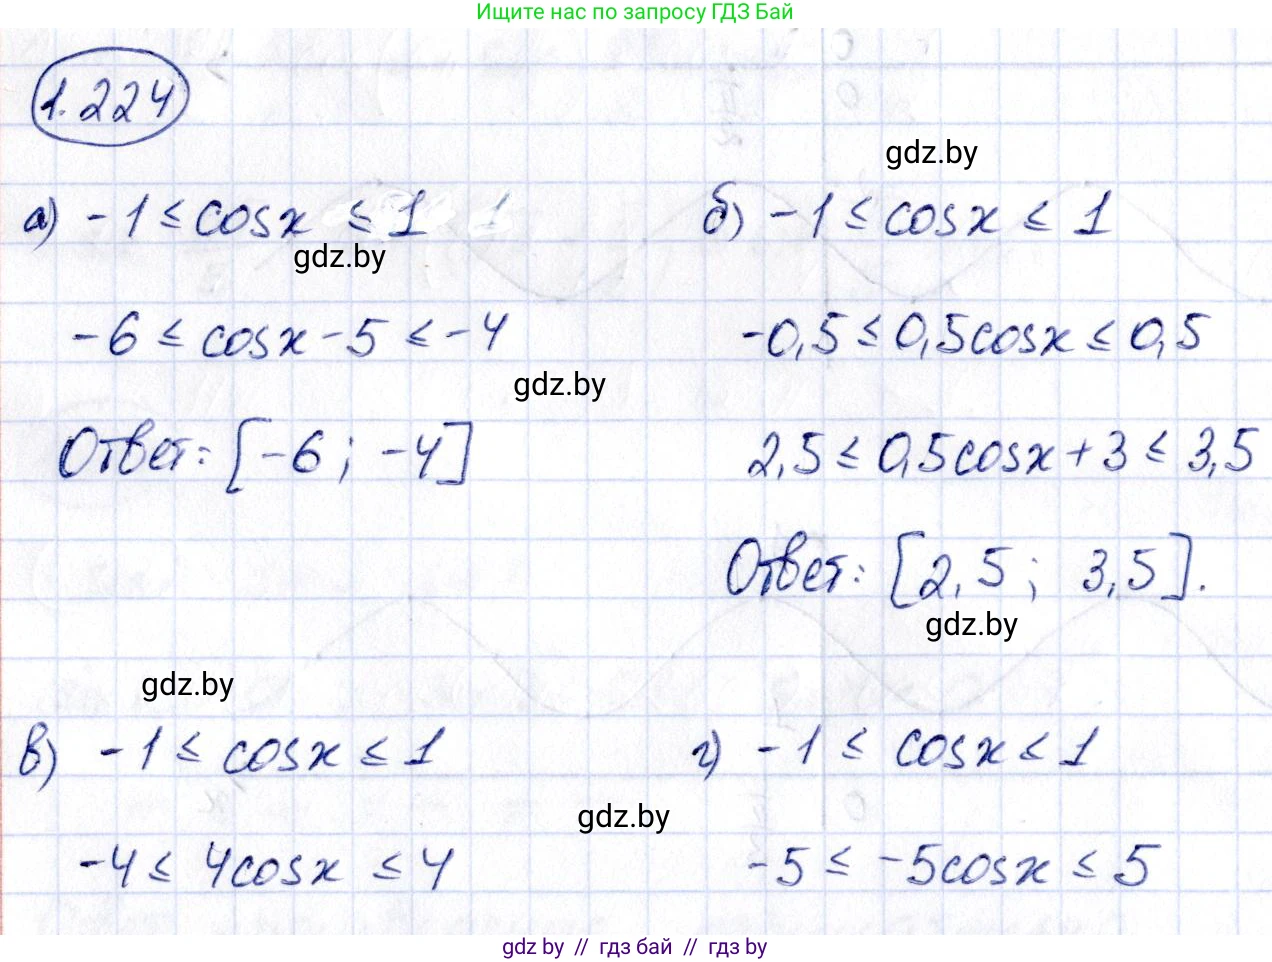 Ищите нас по запросу ГДЗ Бай
1.224
gdz.by
а) -1 ≤ cosx ≤ 1
gdz.by
-6 ≤ cosx - 5 ≤ -4
gdz.by
Ответ: [-6; -4]
б) -1 ≤ cosx ≤ 1
-0,5 ≤ 0,5cosx ≤ 0,5
2,5 ≤ 0,5cosx + 3 ≤ 3,5
Ответ: [2,5; 3,5].
gdz.by
gdz.by
в) -1 ≤ cosx ≤ 1
gdz.by
-4 ≤ 4cosx ≤ 4
г) -1 ≤ cosx ≤ 1
-5 ≤ -5cosx ≤ 5
gdz by // гдз бай // гдз by